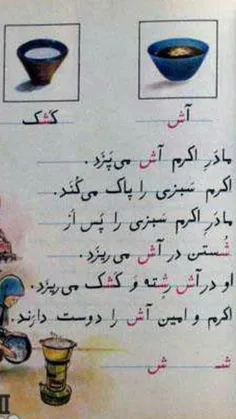 آش
کَشک
مادَرِ اکرم آش می‌پَزَد .
اکرم سَبزی را پاک می‌کُنَد .
مادَرِ اکرم سَبزی را پَس اَز
شُستن در آش می‌ریزَد .
او در آش رِشته وَ کَشک می‌ریزَد .
اکرم و امین آش را دوست دارَند .
شـ ش